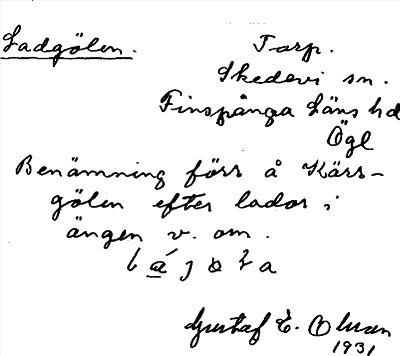 Ladgölen. Torp.
Skedevi sn.
Finspånga Läns hd
Ögl
Benämning förr å Kärr-
gölen efter lador i
ängen v. om.
Gustaf E. Olsson
1931